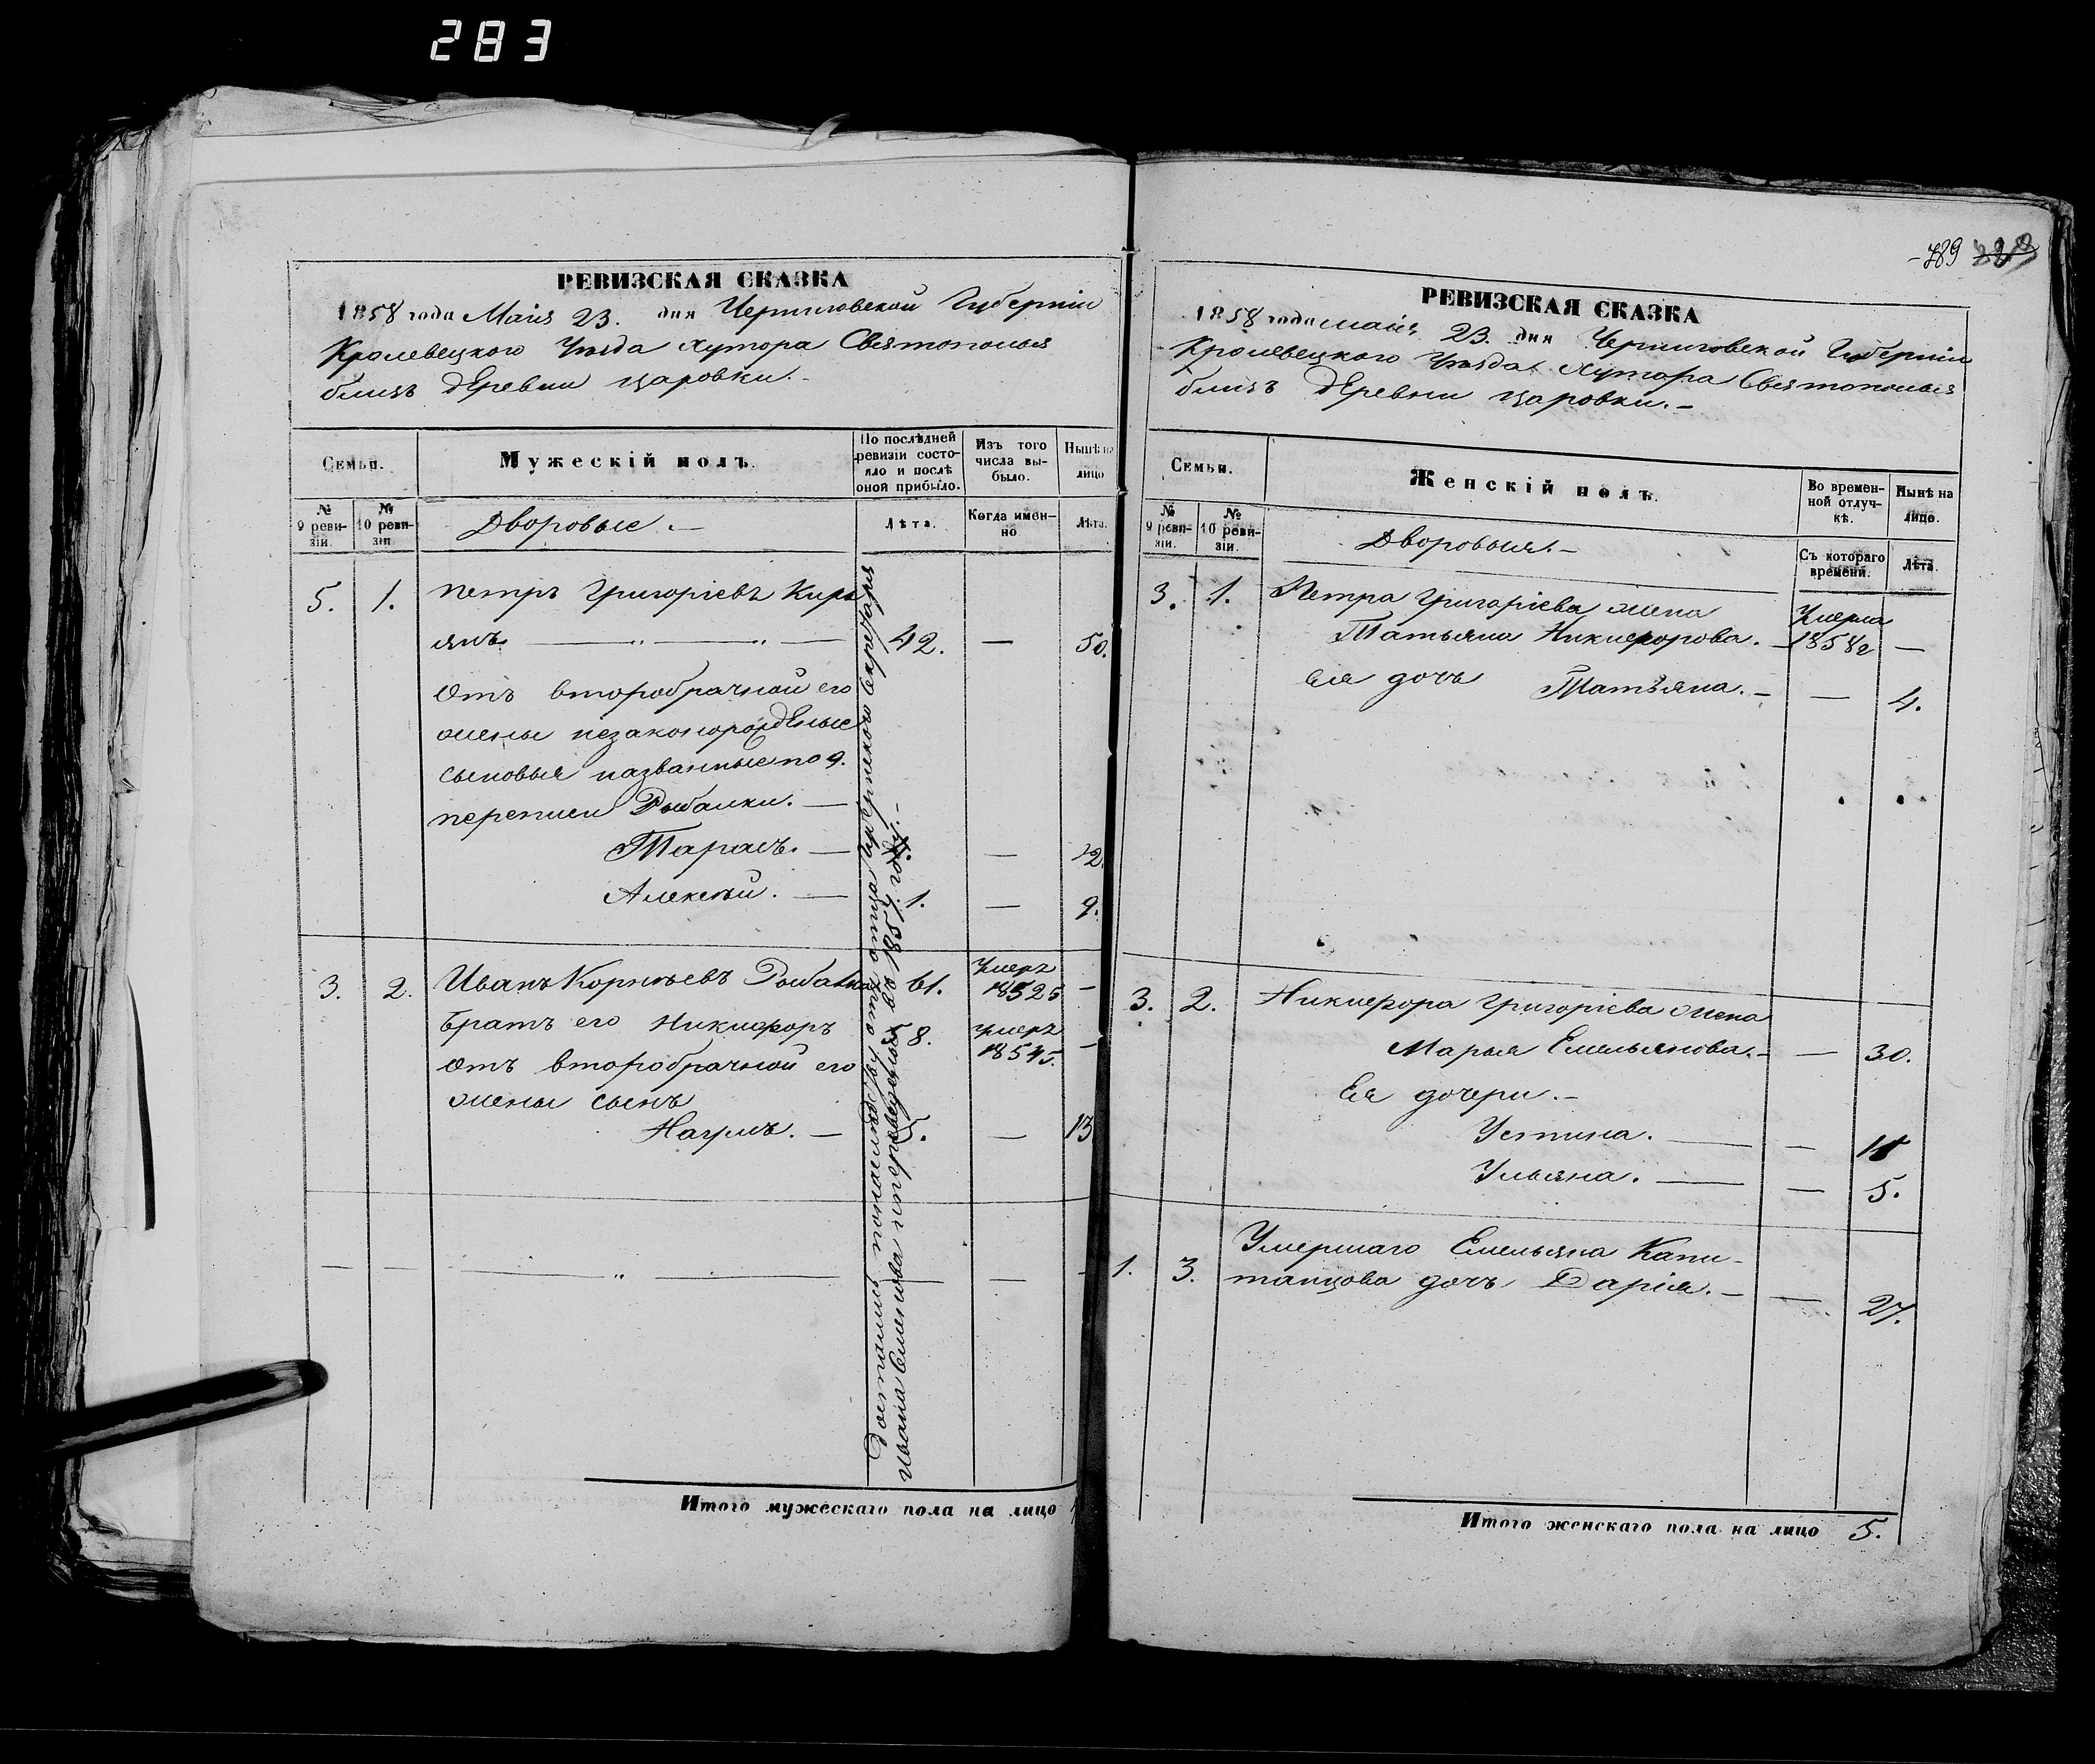 283
РЕВИЗСКАЯ СКАЗКА
1858 года Маія 23. дня Черниговской Губерніи
Кролевецкого Уѣзда хутора Святополья
близъ деревни Царовки.-
Семьи.
Мужескій полъ.
По послѣдней ревизіи состояло и послѣ оной прибыло.
Изъ того числа выбыло.
Нынѣ на лицо
№ 9 ревизіи.
№ 10 ревизіи
Дворовые.-
Лѣта.
Когда именно
Лѣта.
5. 1. Петръ Григоріевъ Кирь
янъ. 42. — 50.
Отъ второбрачной его
жены незаконорожденые
сыновья названные по 9.
переписи Рыбалки.—
Тарасъ.— — 12.
Алексѣй.— 1. — 9.
3. 2. Иванъ Корнѣевъ Рыбалка 61. Умеръ 1852 —
Братъ его Никифоръ 58. умеръ 1854 —
Отъ второбрачной его
жены сынъ
Наумъ.— 5. — 13
Достались помѣщику отъ отца Секретаря
Ивана и переведены въ 1857. году.-
Итого мужескаго пола на лицо
-789
РЕВИЗСКАЯ СКАЗКА
1858 года маія 23. дня Черниговской Губерніи
Кролевецкого Уѣзда хутора Святополья
близъ деревни Царовки.-
Семьи.
Женскій полъ.
Во временной отлучкѣ.
Нынѣ на лицо.
№ 9 ревизіи.
№ 10 ревизіи.
Дворовыя.-
Съ котораго времени.
Лѣта.
3. 1. Петра Григоріева жена Умерла
Татьяна Никифорова.- 1858 г —
Ея дочь Татьяна.- — 4.
3. 2. Никифора Григоріева жена
Марья Емельянова.- — 30.
Ея дочери.-
Устина.— —
Ульяна.— — 5.
1. 3. Умершаго Емельяна Капи-
танцова дочь Дарія.- — 27.
Итого женскаго пола на лицо 5.